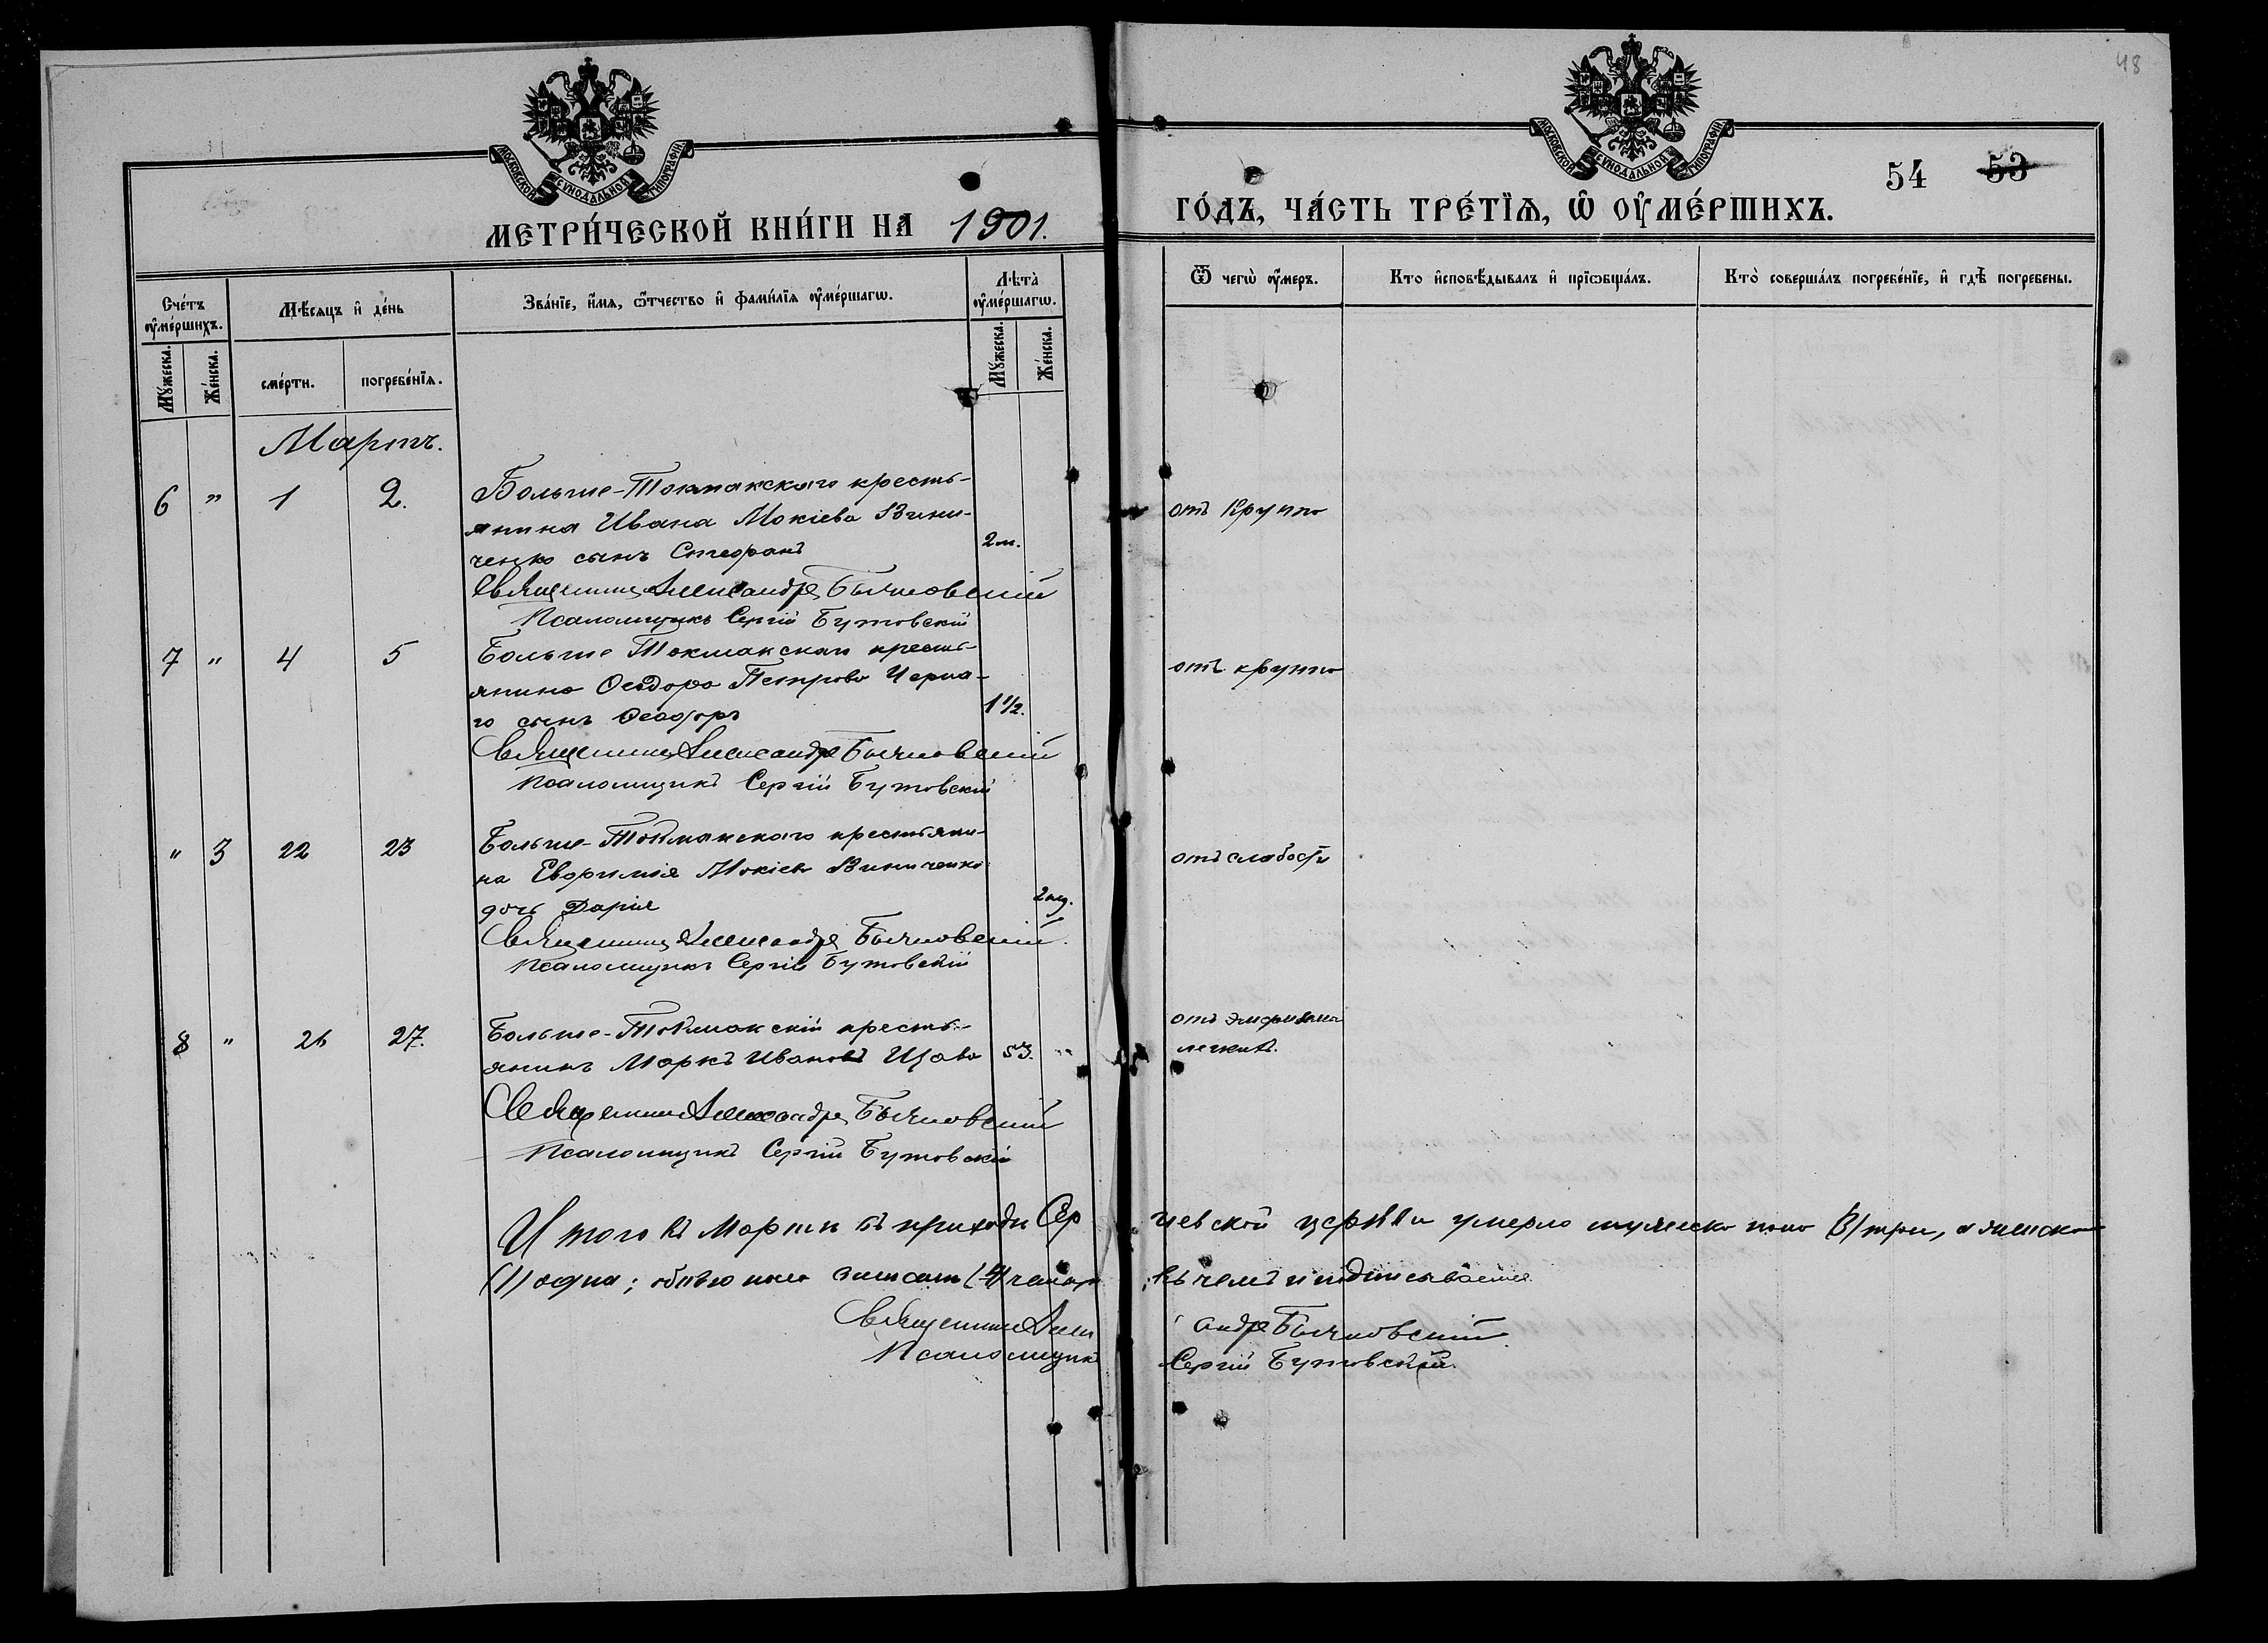 48
МОСКОВСКОЙ СѴНОДАЛЬНОЙ ТИПОГРАФІИ
МОСКОВСКОЙ СѴНОДАЛЬНОЙ ТИПОГРАФІИ
54 53
МЕТРИ́ЧЕСКОЙ КНИ́ГИ НА 1901. ГО́ДЪ, ЧА́СТЬ ТРЕ́ТЇѦ, Ѡ ОУ҆МЕ́РШИХЪ.
Сче́тъ оу҆ме́ршихъ.
Мꙋ́жеска. Же́нска.
Мѣ́сяцъ и҆ де́нь
сме́рти. погребе́нїѧ.
Зва́нїе, и҆́мѧ, ѻ҆́тчество и҆ фами́лїѧ оу҆ме́ршагѡ.
Лѣта̀ оу҆ме́ршагѡ.
Мꙋ́жеска. Же́нска.
Ѿ чегѡ̀ оу҆́меръ.
Кто и҆сповѣ́дывалъ и҆ прїѡбща́лъ.
Кто̀ соверша́лъ погребе́нїе, и҆ гдѣ̀ погребены.
Мартъ.
6 " 1 2. Больше-Токмакскаго кресть-
янина Ивана Мокіева Вини-
ченко сынъ Стефанъ 2 м. отъ Крупа
Священникъ Александръ Бычковскій
Псаломщикъ Сергій Бутовскій
7 " 4 5 Больше Токмакскаго кресть-
янина Ѳеодора Петрова Черна-
го сынъ Ѳеодоръ 1 1/2. отъ крупа
Священникъ Александръ Бычковскій
Псаломщикъ Сергій Бутовскій
" 3 22 23 Больше-Токмакскаго крестьяни-
на Евфимія Мокіева Виниченко
дочь Дарія отъ слабости
Священникъ Александръ Бычковскій.
Псаломщикъ Сергій Бутовскій
8 " 26 27. Больше-Токмакскій кресть-
янинъ Маркъ Ивановъ 53. " отъ эмфиземы
легкихъ.
Священникъ Александръ Бычковскій
Псаломщикъ Сергій Бутовскій
Итого въ Мартѣ въ приходѣ Сергіевской церкви умерло мужеска пола (3) три, а женска
(1) одна; обоего пола записаны (4) четыре, въ чемъ и подписываемся
Священникъ Александръ Бычковскій.
Псаломщикъ Сергій Бутовскій.